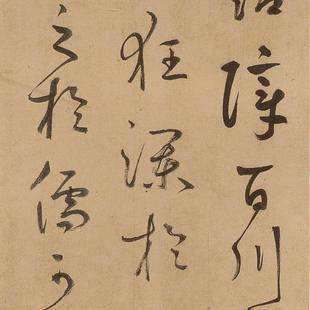 障百川
狂瀾於
之於儒可